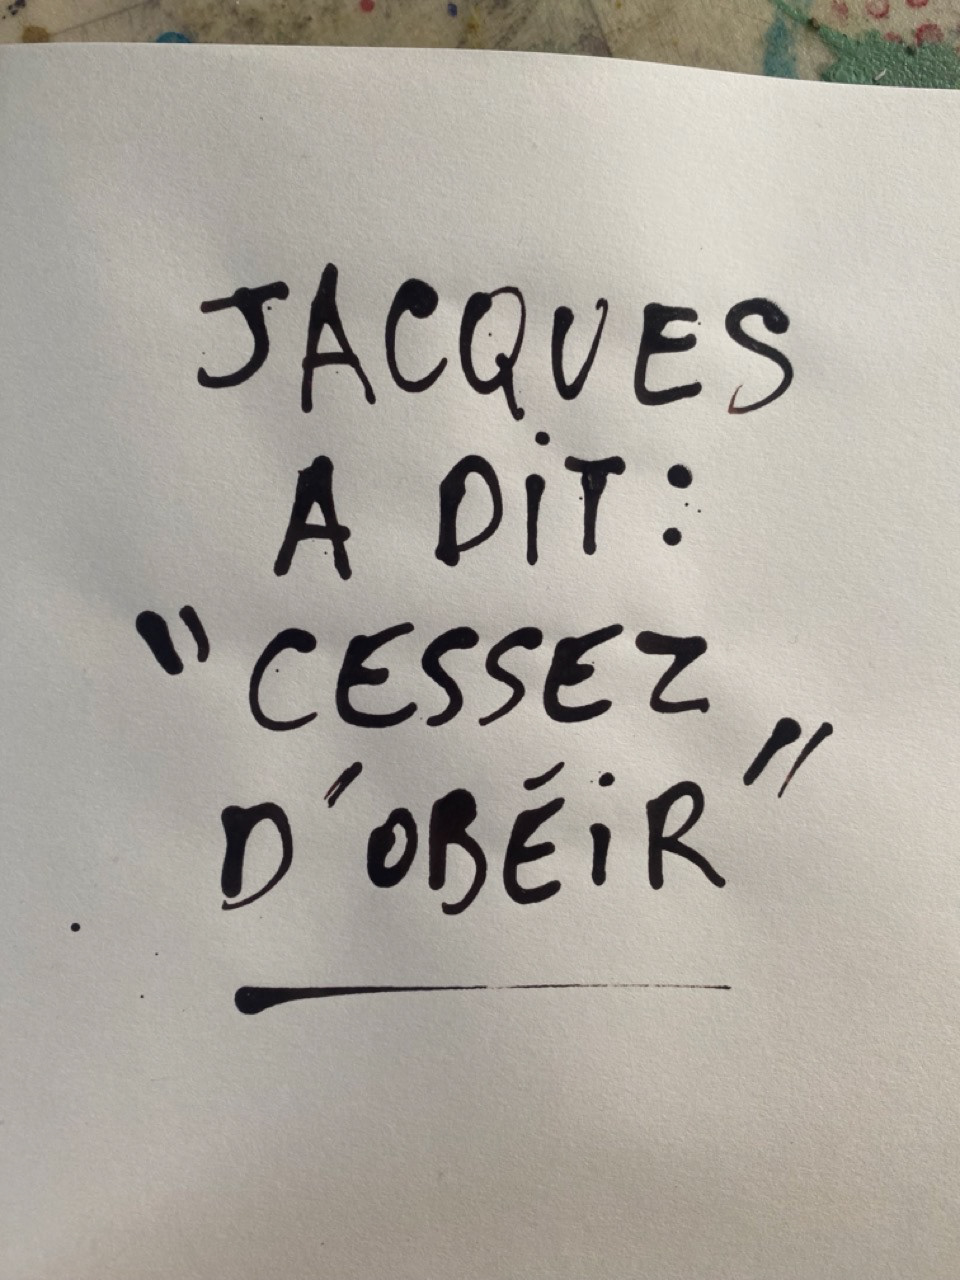 JACQUES
A DiT :
"CESSEZ
D'OBÉiR"